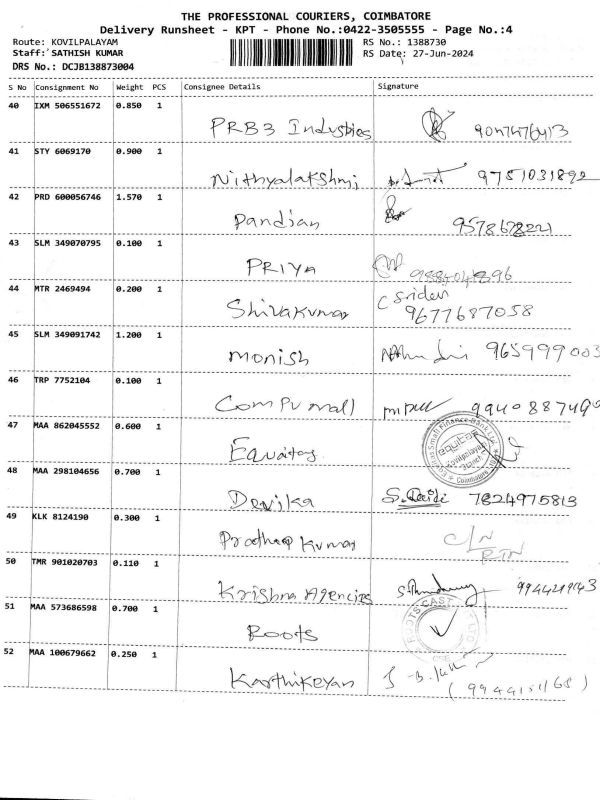 THE PROFESSIONAL COURIERS, COIMBATORE
Delivery Runsheet - KPT - Phone No.:0422-3505555 - Page No.:4
Route: KOVILPALAYAM
RS No.: 1388730
Staff: SATHISH KUMAR
RS Date: 27-Jun-2024
DRS No.: DCJB138873004
S No Consignment No Weight PCS Consignee Details Signature
40 IXM 506551672 0.850 1
PRB3 Industries
41 STY 6069170 0.900 1
Nithyalakshmi 9751031892
42 PRD 600056746 1.570 1
Pandian
43 SLM 349070795 0.100 1
PRIYA
44 MTR 2469494 0.200 1
C Sridevi
Shivakumar 9677687058
45 SLM 349091742 1.200 1
Monish 965999003
46 TRP 7752104 0.100 1
Compu mall 9940887490
47 MAA 862045552 0.600 1
Equitas
Equitas Small Finance Bank Ltd
equitas
Kovilpalayam
Branch
Coimbatore
48 MAA 298104656 0.700 1
Devika 7824975813
49 KLK 8124190 0.300 1
Pradheep Kumar C/N
RTN
50 TMR 901020703 0.110 1
Krishna Agencies
51 MAA 573686598 0.700 1
Roots
ROOTS CAST
52 MAA 100679662 0.250 1
Karthikeyan